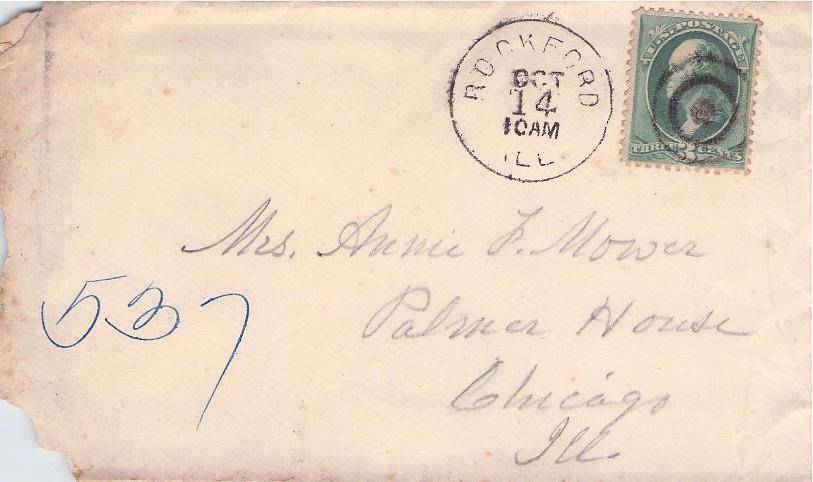 ROCKFORD
OCT
14
10AM
ILL
U.S. POSTAGE
THREE 3 CENTS
Mrs. Annie F. Mower
Palmer House
Chicago
Ill.
537